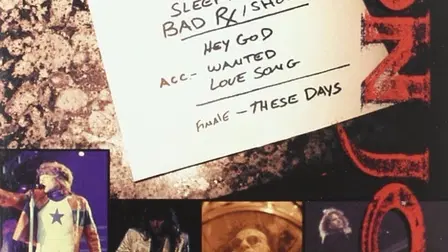 SLEEP
BAD Rx/SHO
HEY GOD
ACC- WANTED
LOVE SONG
FINALE - THESE DAYS